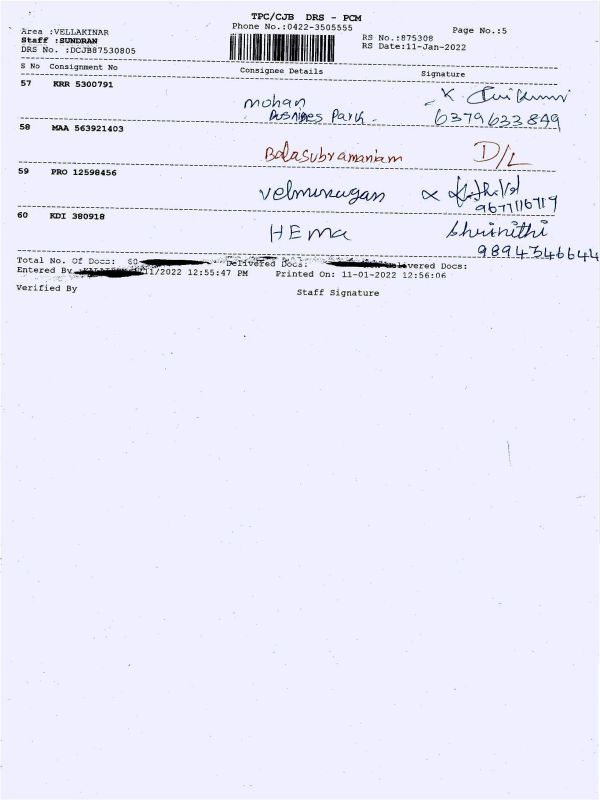 TPC/CJB DRS - PCM
Phone No.:0422-3505555
Page No.:5
Area :VELLAKINAR
Staff :SUNDRAN
DRS No. :DCJB87530805
RS No.:875308
RS Date:11-Jan-2022
S No Consignment No Consignee Details Signature
57 KRR 5300791
mohan
Business Park
6379633849
58 MAA 563921403
Balasubramaniam D/L
59 PRO 12598456
Velmurugan
9677116719
60 KDI 380918
HEMA Shrinithi
9894346644
Total No. Of Docs: 60 Delivered Docs: elivered Docs:
Entered By 11/2022 12:55:47 PM Printed On: 11-01-2022 12:56:06
Verified By Staff Signature